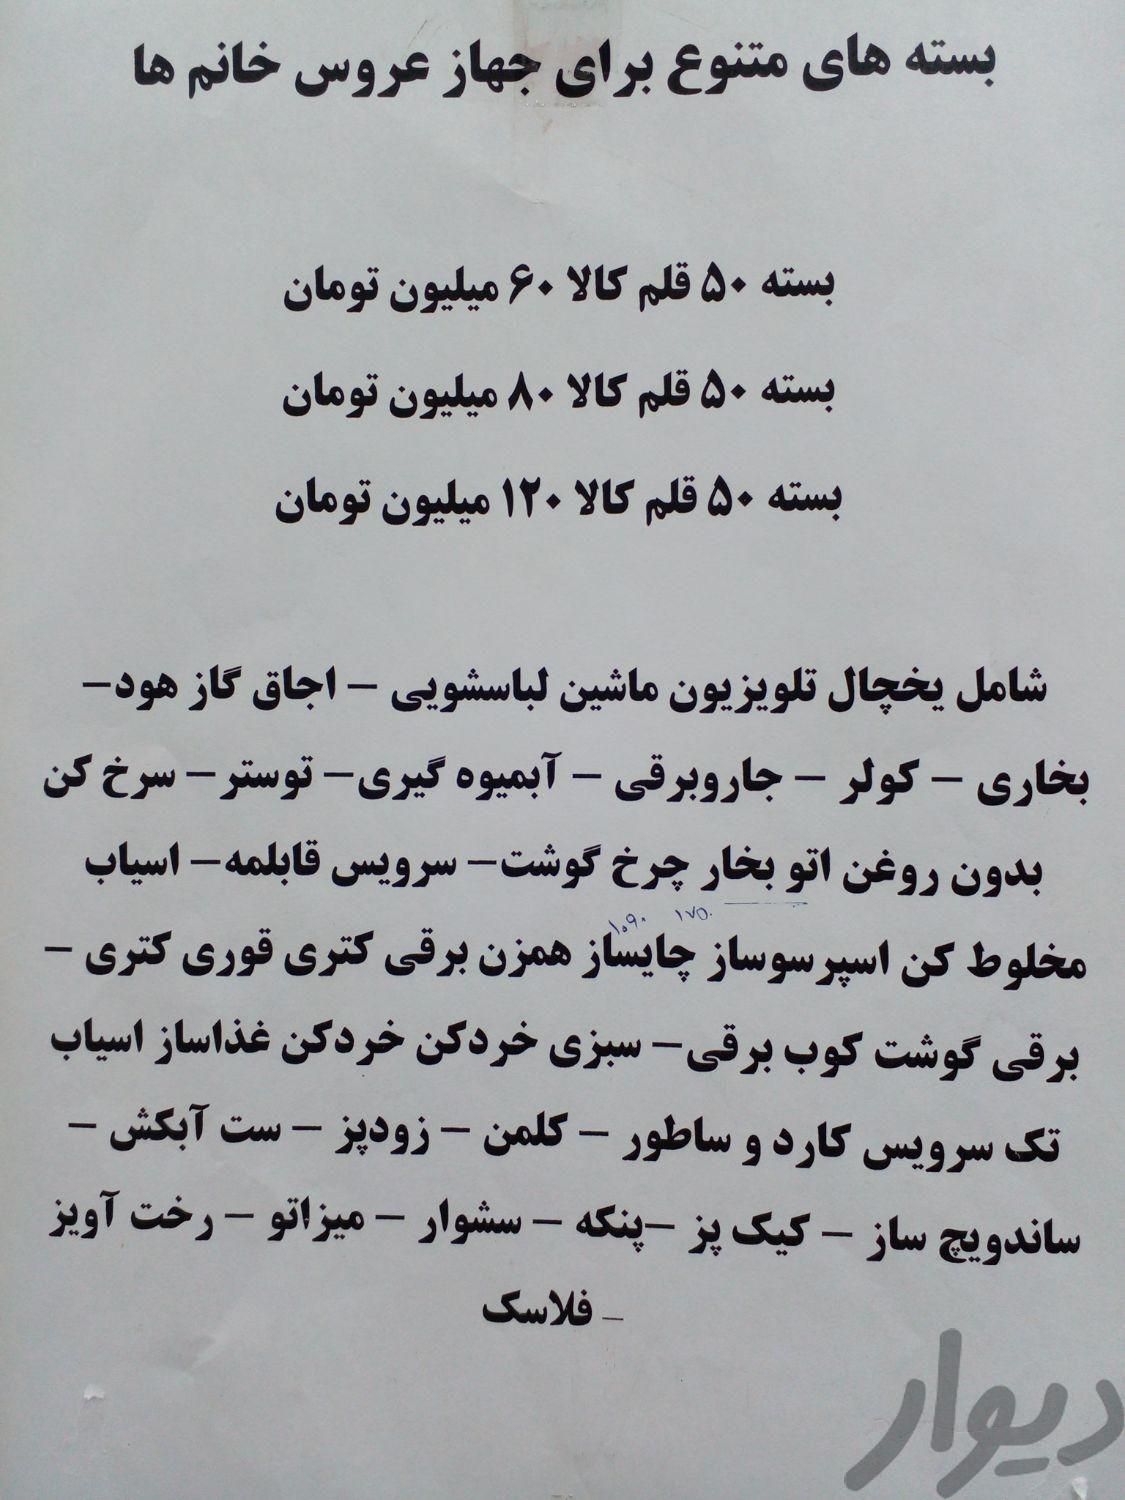 بسته های متنوع برای جهاز عروس خانم ها
بسته ۵۰ قلم کالا ۶۰ میلیون تومان
بسته ۵۰ قلم کالا ۸۰ میلیون تومان
بسته ۵۰ قلم کالا ۱۲۰ میلیون تومان
شامل یخچال تلویزیون ماشین لباسشویی – اجاق گاز هود–
بخاری – کولر – جاروبرقی – آبمیوه گیری– توستر– سرخ کن
بدون روغن اتو بخار چرخ گوشت– سرویس قابلمه– اسیاب
۱۷۵۰ ۱۰۹۰
مخلوط کن اسپرسوساز چایساز همزن برقی کتری قوری کتری –
برقی گوشت کوب برقی– سبزی خردکن خردکن غذاساز اسیاب
تک سرویس کارد و ساطور – کلمن – زودپز – ست آبکش –
ساندویچ ساز – کیک پز –پنکه – سشوار – میزاتو – رخت آویز
– فلاسک
دیوار